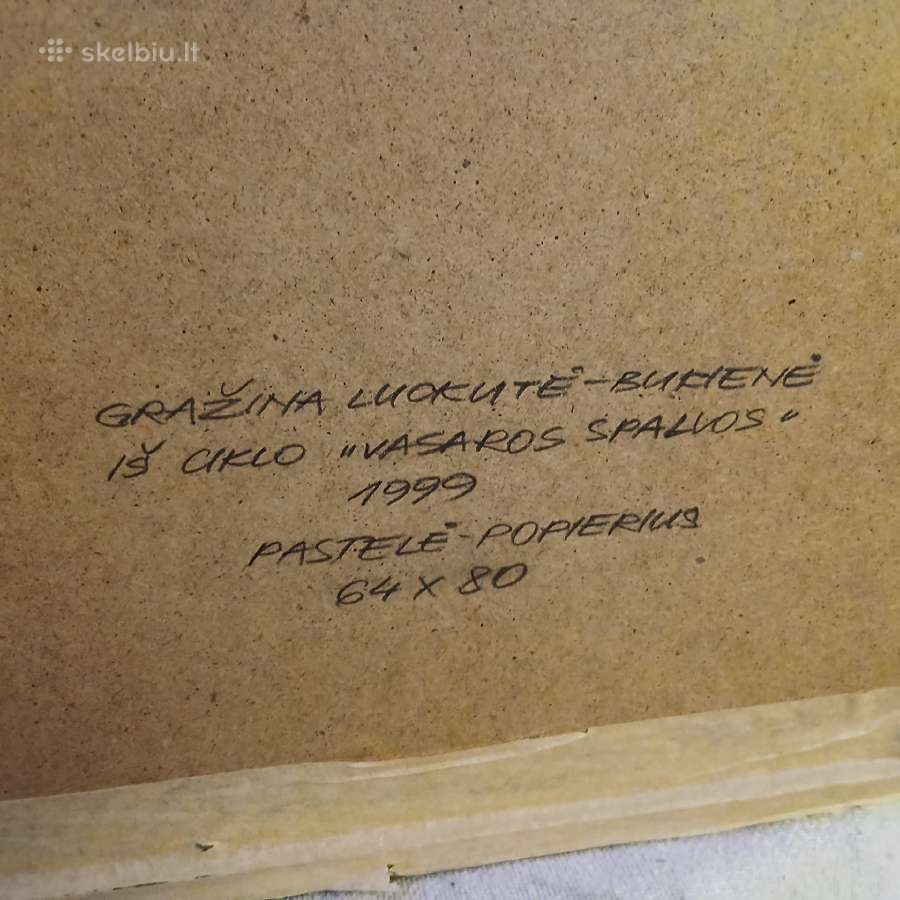 skelbiu.lt
GRAŽINA LUOKUTĖ-BUKIENĖ
IŠ CIKLO „VASAROS SPALVOS"
1999
PASTELĖ-POPIERIUS
64 X 80